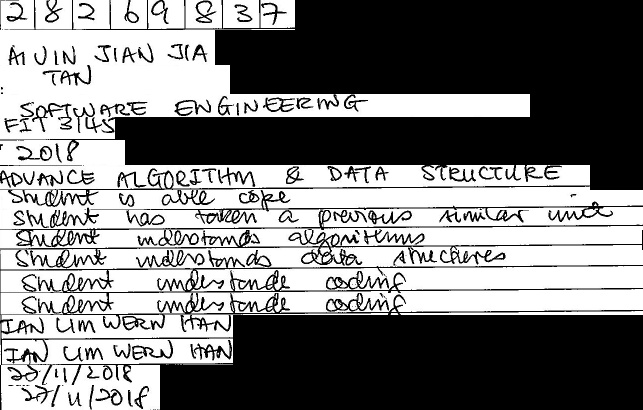 28269837
ALVIN JIAN JIA
TAN
SOFTWARE ENGINEERING
FIT 3145
2018
ADVANCE ALGORITHM & DATA STRUCTURE
Student is able cope
Student has taken a previous similar unit
Student understands algorithms
Student understands data structures
Student understands coding
Student understands coding
IAN LIM WERN HAN
IAN LIM WERN HAN
22/11/2018
22/11/2018